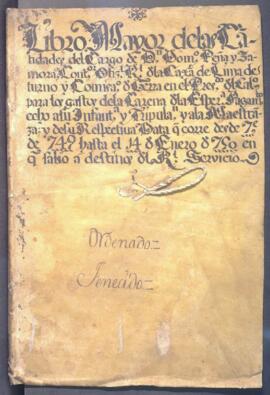 Libro Mayor de las Ca-
tidades del Cargo de Dn Domo Peña y Za-
mora Contor Ofizl Rl dla Caxa de Lima de
turno y Comisao d Gerra en el Preso dl Cal
para los gastos de la Carena dla Espera Pagam
a su Infant, y Tripula y a la Maestra
za: y de su Respectiva Data q corre desde 7e
de 749 hasta el 14 d Enero d 750 en
q salio a destino dl Rl Servicio
Ordenado=
Fenecido=